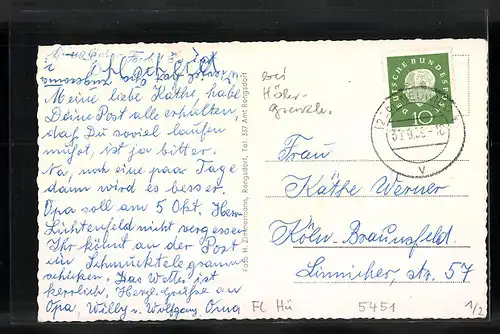 Meine liebe Käthe, habe
Deine Post alle erhalten,
daß Du soviel laufen
mußt, ist ja bitter.
Na, noch eine paar Tage
dann wird es besser.
Opa soll am 5 Okt. Herrn
Lichtenfeld nicht vergessen
Ihr könnt an der Post
ein Schmucktelegramm
schicken. Das Wetter ist
herrlich. Herzl. Grüße an
Opa, Willy u. Wolfgang Oma
Foto H. Zimmermann, Rengsdorf, Tel. 537 Amt Rengsdorf
bei
DEUTSCHE BUNDESPOST
10
Frau
Käthe Werner
Köln-Braunsfeld.
Linnicher, str. 57
FC Hü
5451
1/2